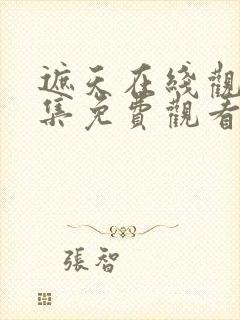 遮天在綫觀
集免費觀看
張智